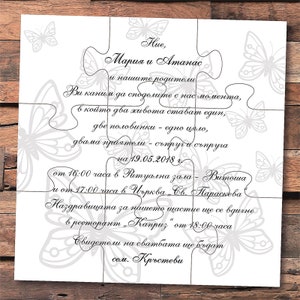 Ние,
Мария и Атанас
и нашите родители
Ви каним да споделите с нас момента,
в който два живота стават един,
две половинки - едно цяло,
двама приятели - съпруг и съпруга
на 19.05.2018 г.
от 16:00 часа в Ритуална зала - Витоша
и от 17:00 часа в Църква "Св. Параскева"
Наздравицата за нашето щастие ще се вдигне
в ресторант "Каприз" от 18:00 часа
Свидетели на сватбата ще бъдат
сем. Кръстеви